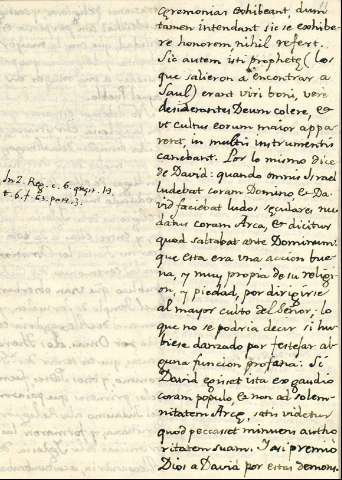 çeremoniar exhibeant, dum
tamen intendant sic se exhibe
re honorem, nihil refert.
Sic autem isti prophetę (los
que salieron a encontrar a
Saul) erant viri boni, vere
desiderantes Deum colere, et
vt cultus eorum maior appa
reret, in multis instrumentis
canebant. Por lo mismo dice
de David: quando omnis Israel
ludebat coram Domino et Da-
vid faciebat ludos sęculares, nu
datus coram Arca, et dicitur
quod saltabat ante Dominum:
que esta era vna accion bue
na, y muy propia de su religi
on, y piedad, por dirigirse
al mayor culto del Señor; lo
que no se podria decir si hu
biese danzado por festejar al
guna funcion profana: Si
David egisset ita ex gaudio
coram populo, et non ad solem-
nitatem Arcę, satis videtur
quod peccasset minuens autho
ritatem suam. Y asi premió
Dios a David por estas demons.
In 2. Reg. c. 6. quęst. 19.
t. 6. f. 63. part. 3.